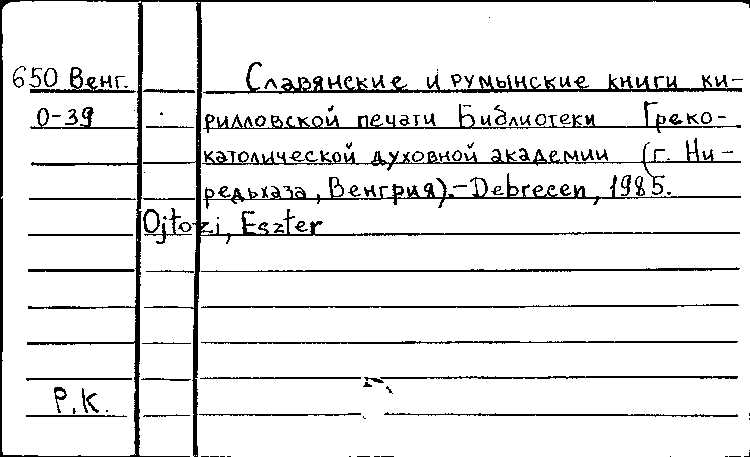 650 Венг. Славянские и румынские книги ки-
О-39 рилловской печати Библиотеки Греко-
католической духовной академии (г. Ни-
редьхаза, Венгрия).-Debrecen, 1985.
Ojtozi, Eszter
Р.К.